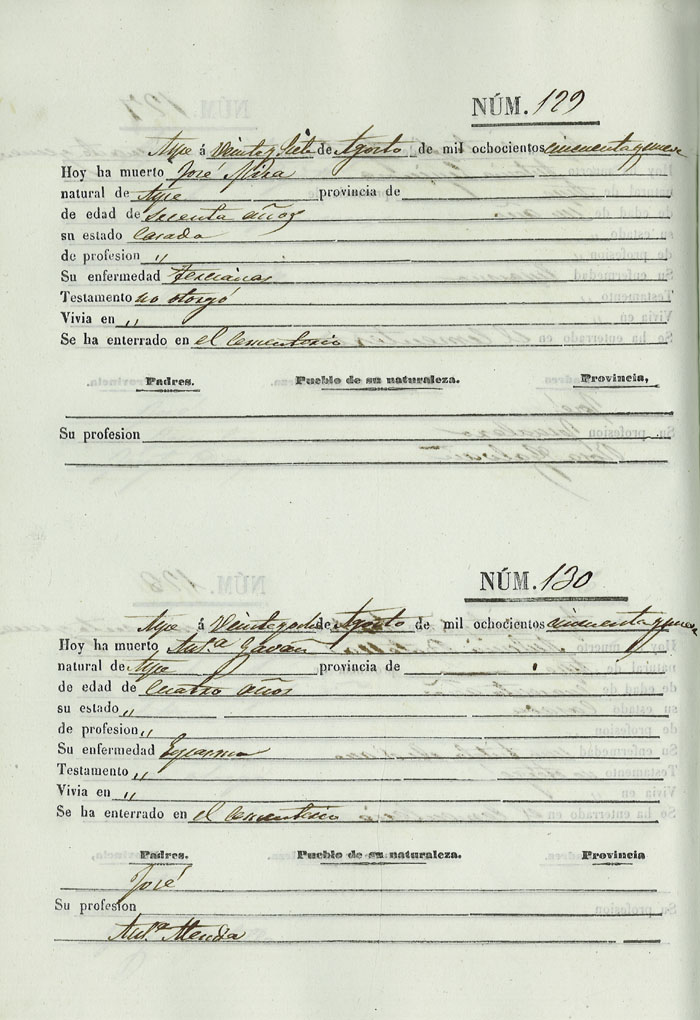 NÚM. 129
Aspe á Veinte y siete de Agosto de mil ochocientos cincuenta y nueve
Hoy ha muerto José Mira
natural de Aspe provincia de
de edad de años
su estado Casado
de profesion "
Su enfermedad Tercianas
Testamento no otorgó
Vivia en "
Se ha enterrado en el Cementerio
Padres. Pueblo de su naturaleza. Provincia,
Su profesion
NÚM. 130
Aspe á de Agosto de mil ochocientos cincuenta y nueve
Hoy ha muerto Ant.ª
natural de Aspe provincia de
de edad de Cuatro años
su estado "
de profesion "
Su enfermedad
Testamento "
Vivia en "
Se ha enterrado en el Cementerio
Padres. Pueblo de su naturaleza. Provincia
José
Su profesion
Ant.ª